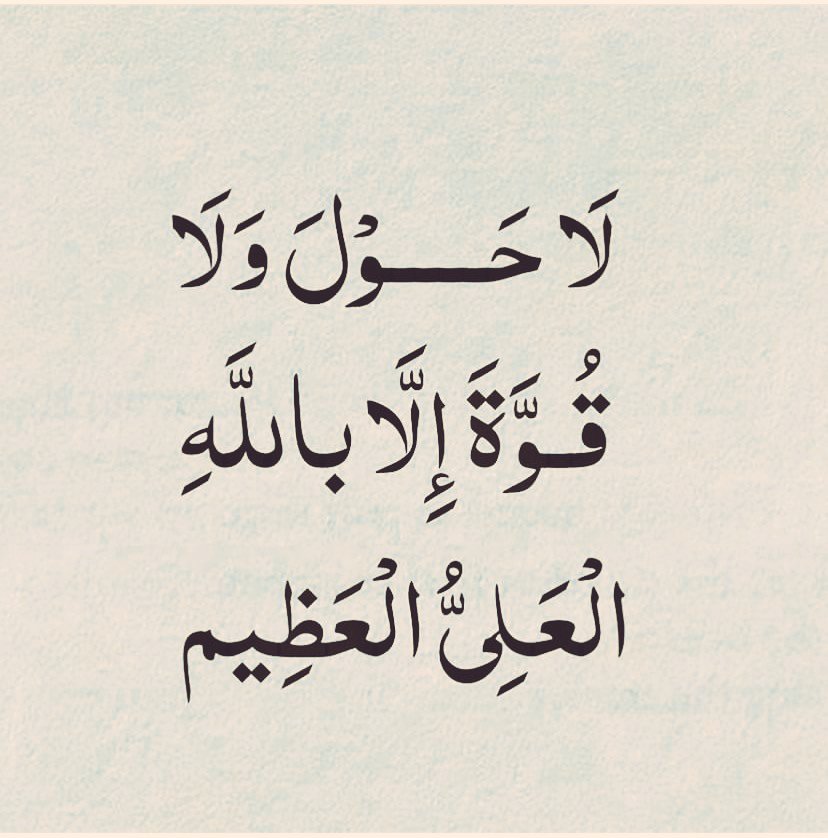 لَا حَـــوْلَ وَلَا
قُـوَّةَ إِلَّا باللَّهِ
الْعَلِىُّ الْعَظِيم